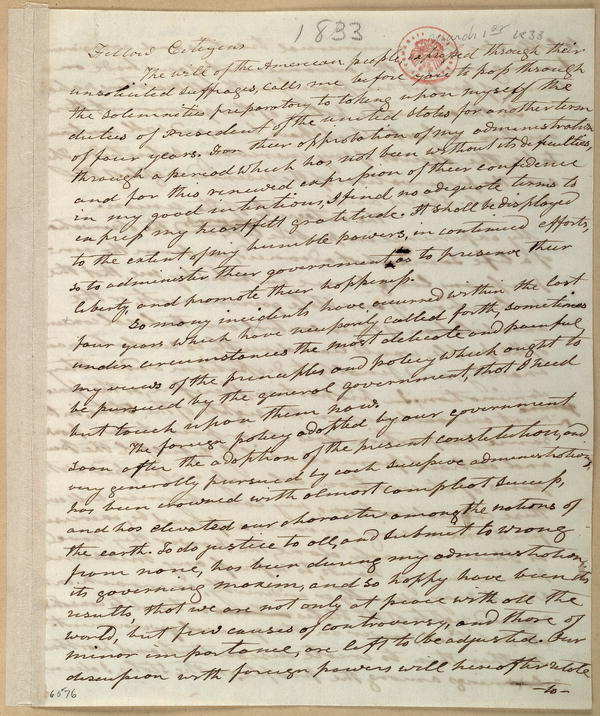 1833
March 1st 1833
Fellow Citizens
The will of the American people, expressed through their
unsolicited suffrages, calls me before you to pass through
the solemnities preparatory to taking upon myself the
duties of President of the United States for another term
of four years. For their approbation of my administration
through a period which has not been without its difficulties,
and for this renewed expression of their confidence
in my good intentions, I find no adequate terms to
express my heartfelt gratitude. It shall be displayed
to the extent of my humble powers, in continued efforts,
so to administer their government, as to preserve their
liberty, and promote their happiness.
So many incidents have occurred within the last
four years which have necessarily called forth, sometimes
under circumstances the most delicate and painful,
my views of the principles and policy which ought to
be pursued by the general government, that I need
but touch upon them now.
The foreign policy adopted by our government
soon after the adoption of the present constitution, and
very generally pursued by each successive administration,
has been crowned with almost compleat success,
and has elevated our character among the nations of
the earth. To do justice to all, and submit to wrong
from none, has been during my administration,
its governing maxim, and so happy have been its
results, that we are not only at peace with all the
world, but few causes of controversy, and those of
minor importance, are left to be adjusted. Our
discussion with foreign powers will hereafter relate
-to-
6576